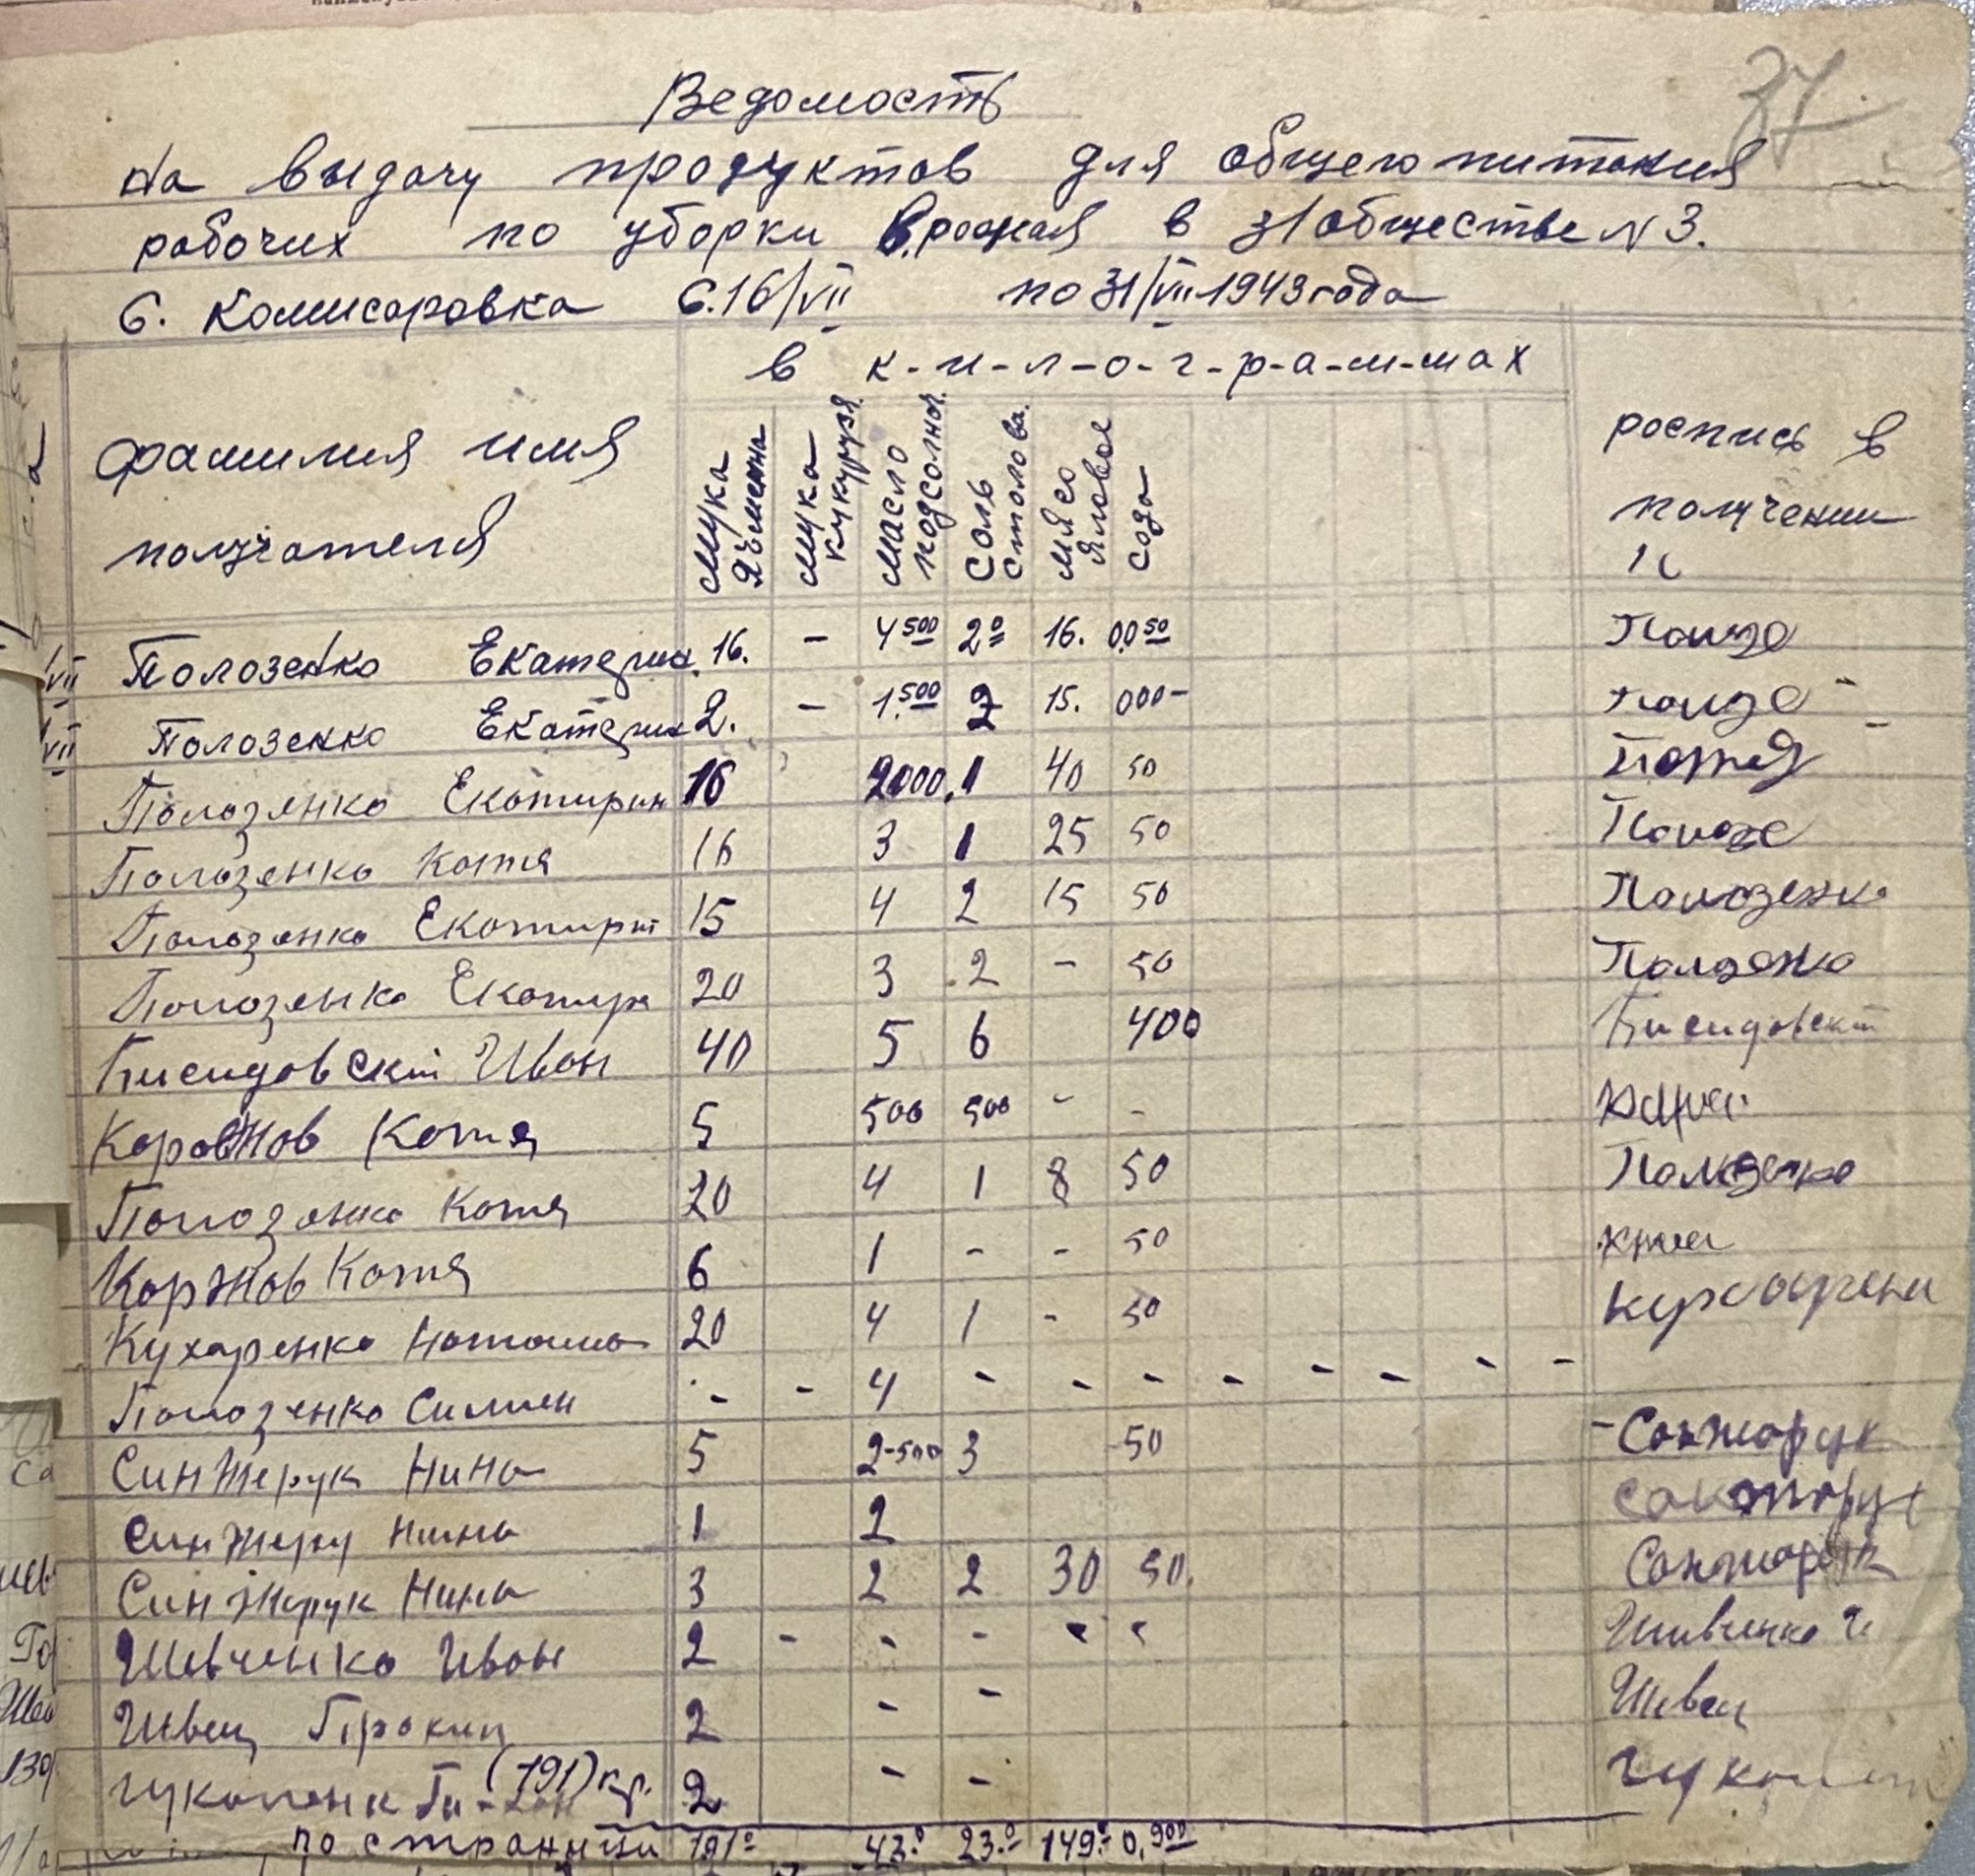 37
Ведомость
На выдачу продуктов для общего питания
рабочих по уборки Врожая в з/обществе N 3.
С. Комисаровка С. 16/VII по 31/VII 1943 года
в к-и-л-о-г-р-а-м-мах
фамилия имя получателя Мука Ячменна мука кукуруз. масло подсолнеч. Соль столова. мясо яловое сода роспись в получении
VII Полозенко Екатерин. 16. – 4 500 2 0 16. 0.0 50
VII Полозенко Екатерин 2. – 1.500 2 15. 000-
Полозенко Екотирин 16 2000. 1 40 50
Полозенко Котя 16 3 1 25 50
Полозенко Екотирин 15 4 2 15 50 Полозенко
Полозенко Екотири 20 3 2 – 50
Писидовский Ивон 40 5 6 400 Писидовский
Коровжов Котя 5 500 500 - -
Полозенко Котя 20 4 1 8 50 Полозенко
Коржов Котя 6 1 - - 50
КухаренкоНоташа 20 4 1 - 50 Кухарени
Полозенко Симиен - - 4 - - - - - - - -
Синжерук Нина 5 2-500 3 50 -Санжарук
Синжеру Нина 1 2
Синжерук Нина 3 2 2 30 50. Санжарук
Шевченко Ивон 2 - - - - - Шивченко И
Швец Прокип 2 - - Швец
(191) кр. 2 - -
по страници 191 0 43. 0 23. 0 149. 0 0,900